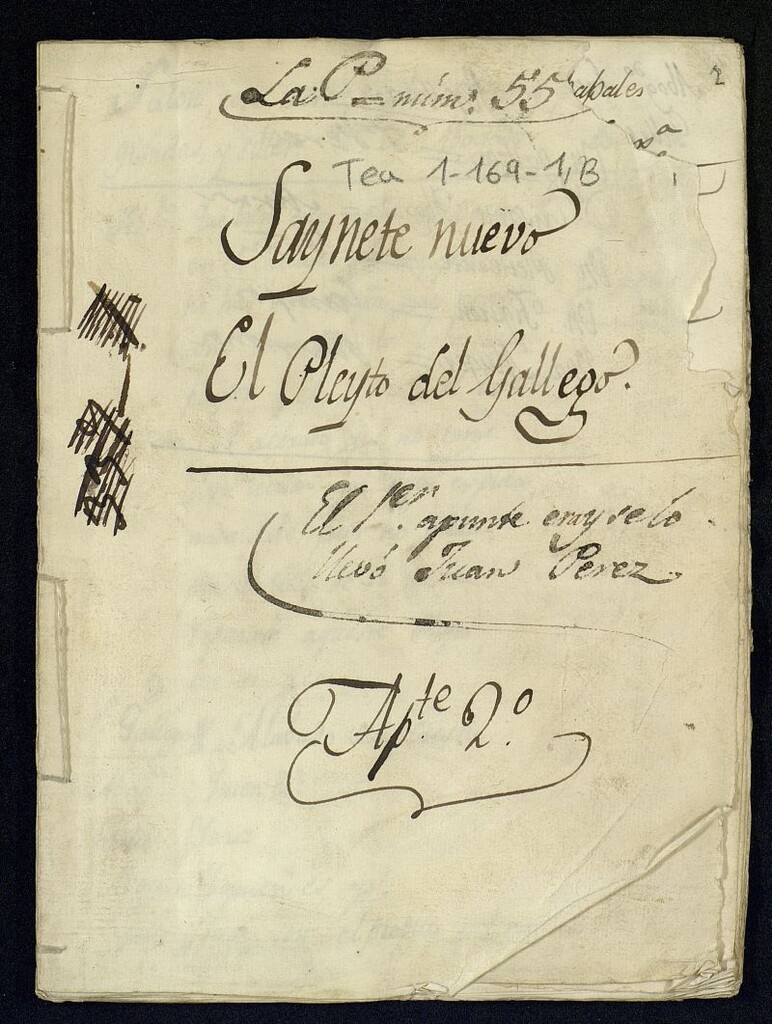 La P— núm. 55 cabales
2
xª
Tea 1-169-1, B
Saynete nuevo
El Pleyto del Gallego.
El 1.er apunte
llevó Juan Perez
Ap.te 2.º